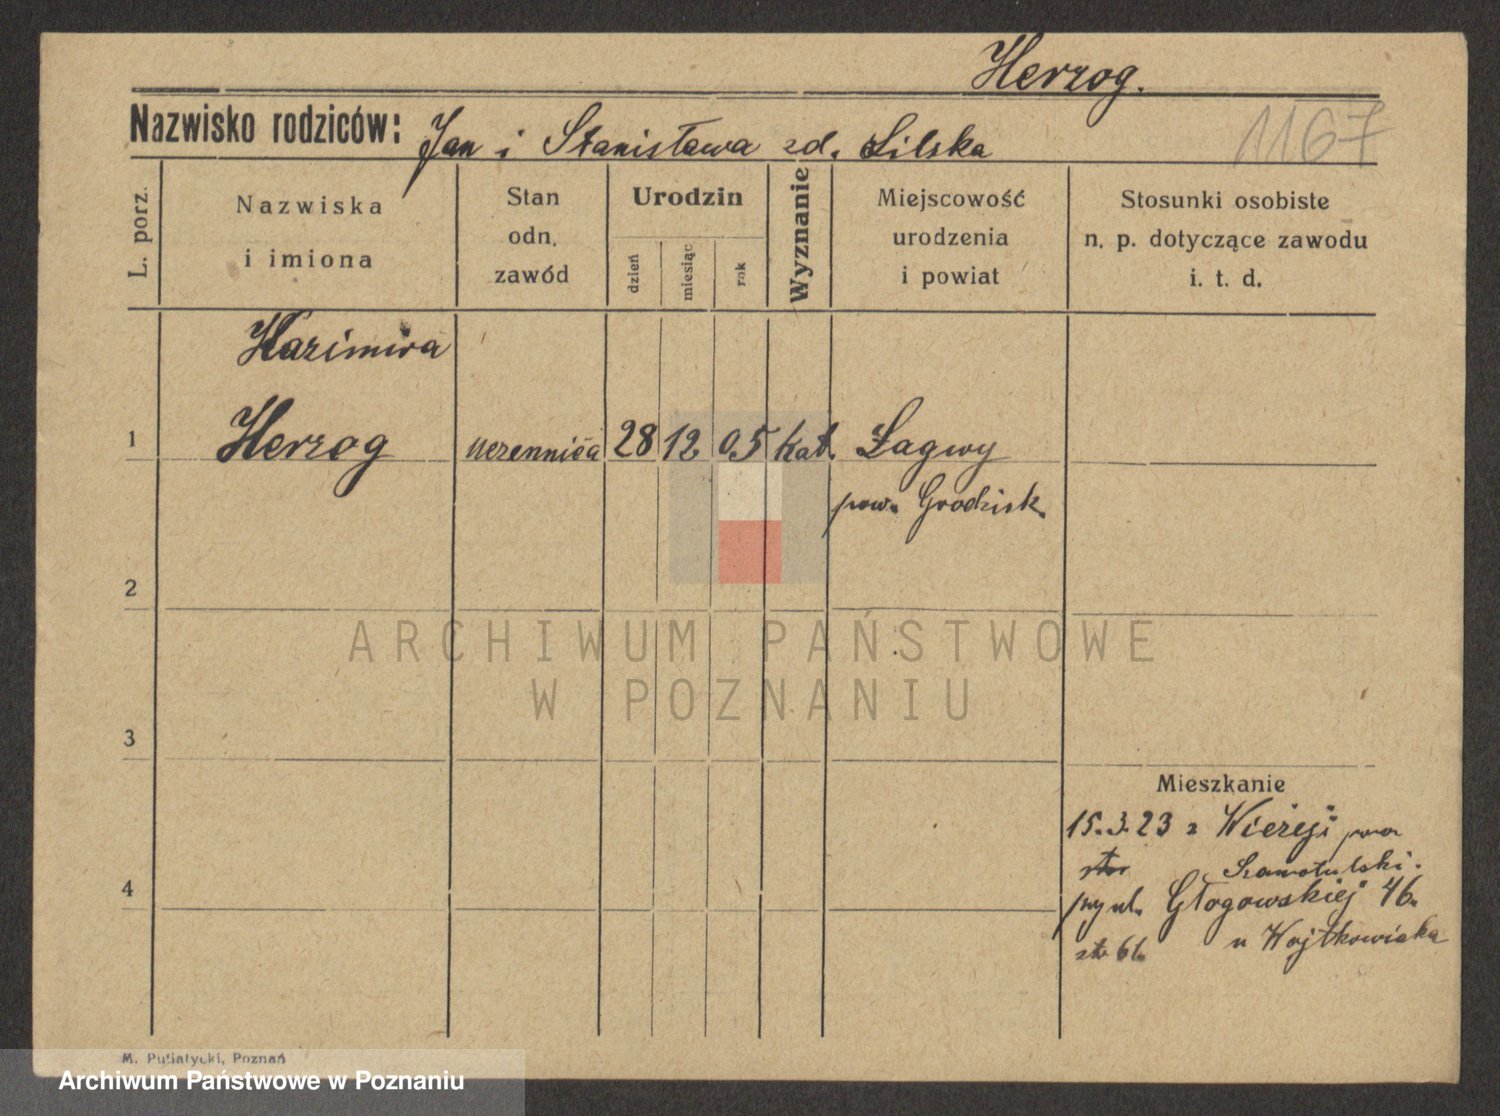 Herzog.
Nazwisko rodziców: Jan i Stanisława zd. Lilska
1167
L. porz.
Nazwiska
i imiona
Stan
odn.
zawód
Urodzin
dzień
miesiąc
rok
Wyznanie
Miejscowość
urodzenia
i powiat
Stosunki osobiste
n. p. dotyczące zawodu
i. t. d.
Kazimira
1 Herzog uczennica 28 12 05 kat. Łagwy
pow. Grodzisk.
2
ARCHIWUM PAŃSTWOWE
W POZNANIU
3
Mieszkanie
15.3.23 z Wierzeji
Szamotulski.
4
Głogowskiej 46.
u Wojtkowiaka
M. Putiatycki, Poznań
Archiwum Państwowe w Poznaniu